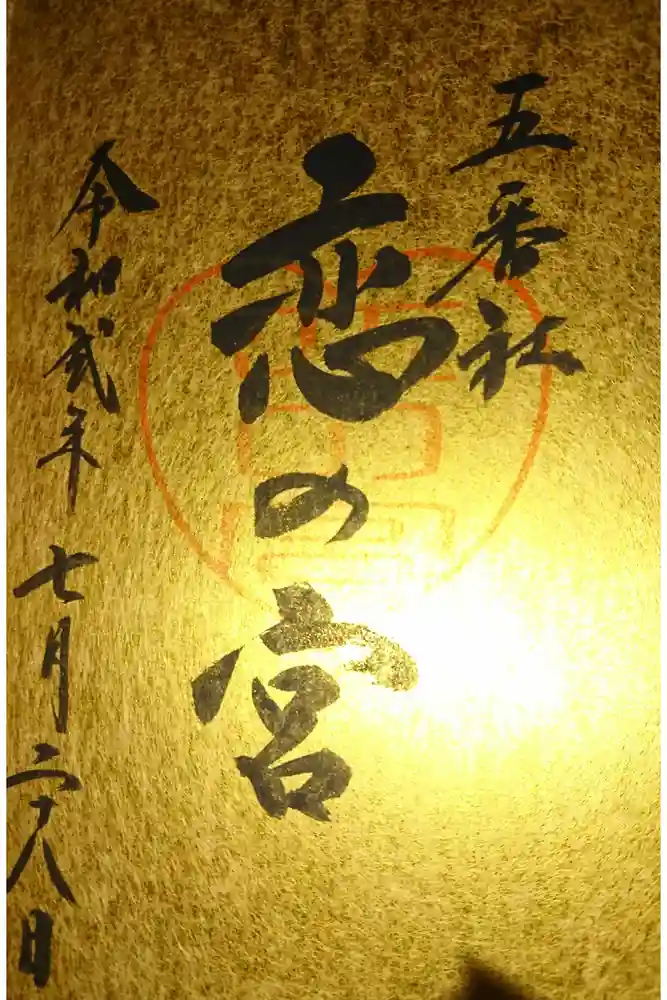 五番社
恋の宮
令和弐年七月二十八日